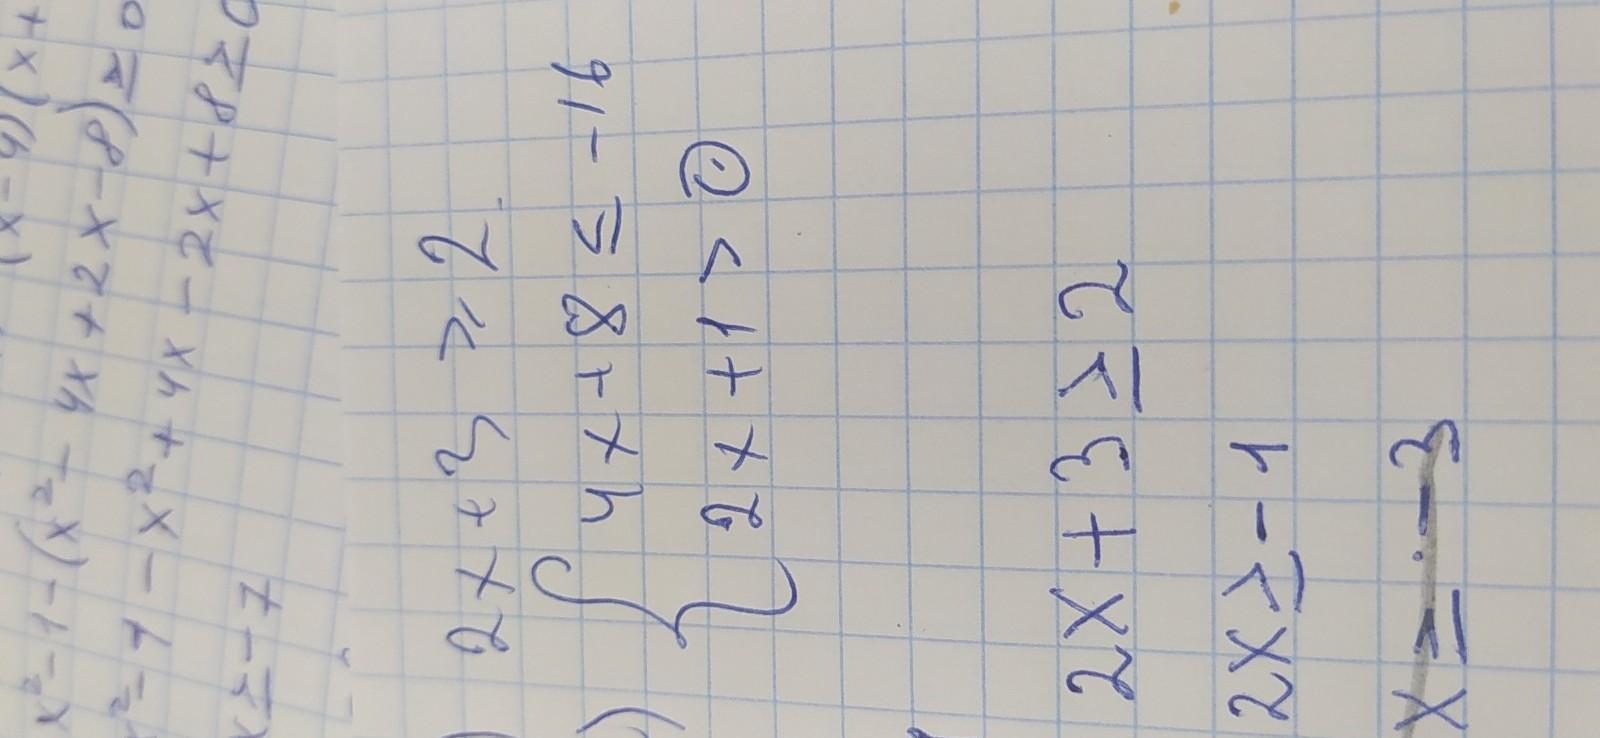 x²-1-(x²-4x+2x-8)≥0
x²-1-x²+4x-2x+8≥0
x≥-7
2x+3 ≥ 2
4x+8 ≤ -16
2x+1 > 0
2x+3≥2
2x≥-1